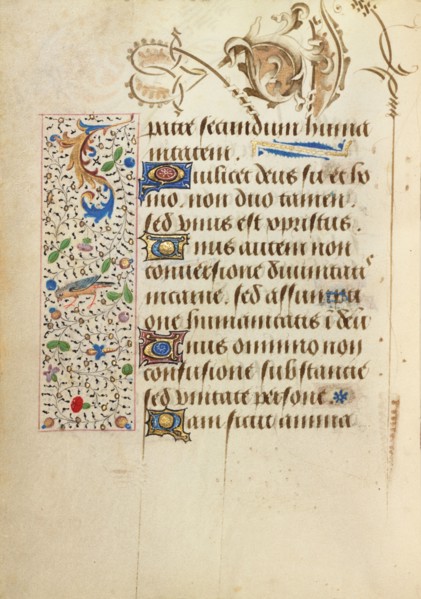 patre secundum huma
nitatem.
Qui licet deus sit et ho
mo. non duo tamen.
sed vnus est xpristus.
Vnus autem non
conuersione diuinitatis
in carne. sed assumpti
one humanitatis i deū
Vnus omnino non
confusione substancie
sed vnitate persone.
Nam sicut anima